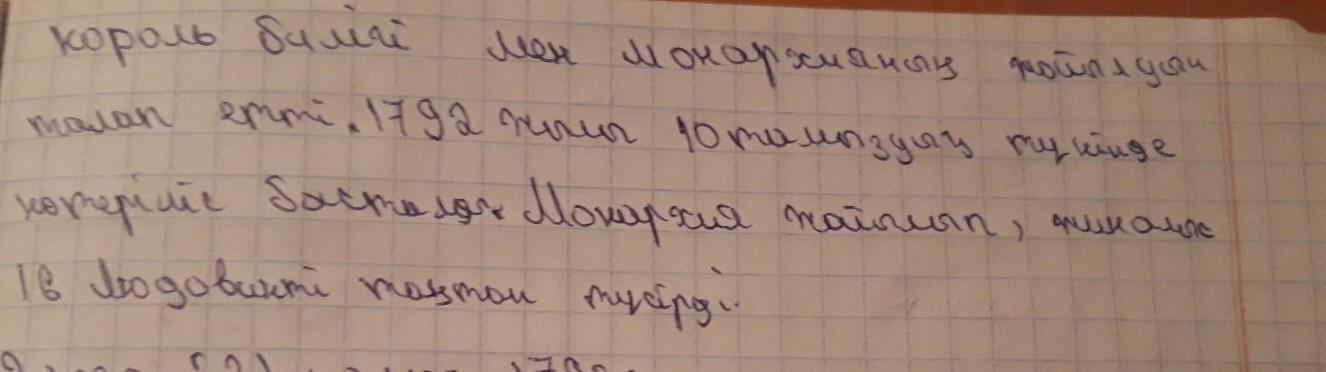 король билігі мен монархияның жойылуын
талап етті. 1792 жылы 10 тамыздың түнінде
көтеріліс басталды. Монархия жойылып,
16 Людовикті тақтан түсірді.